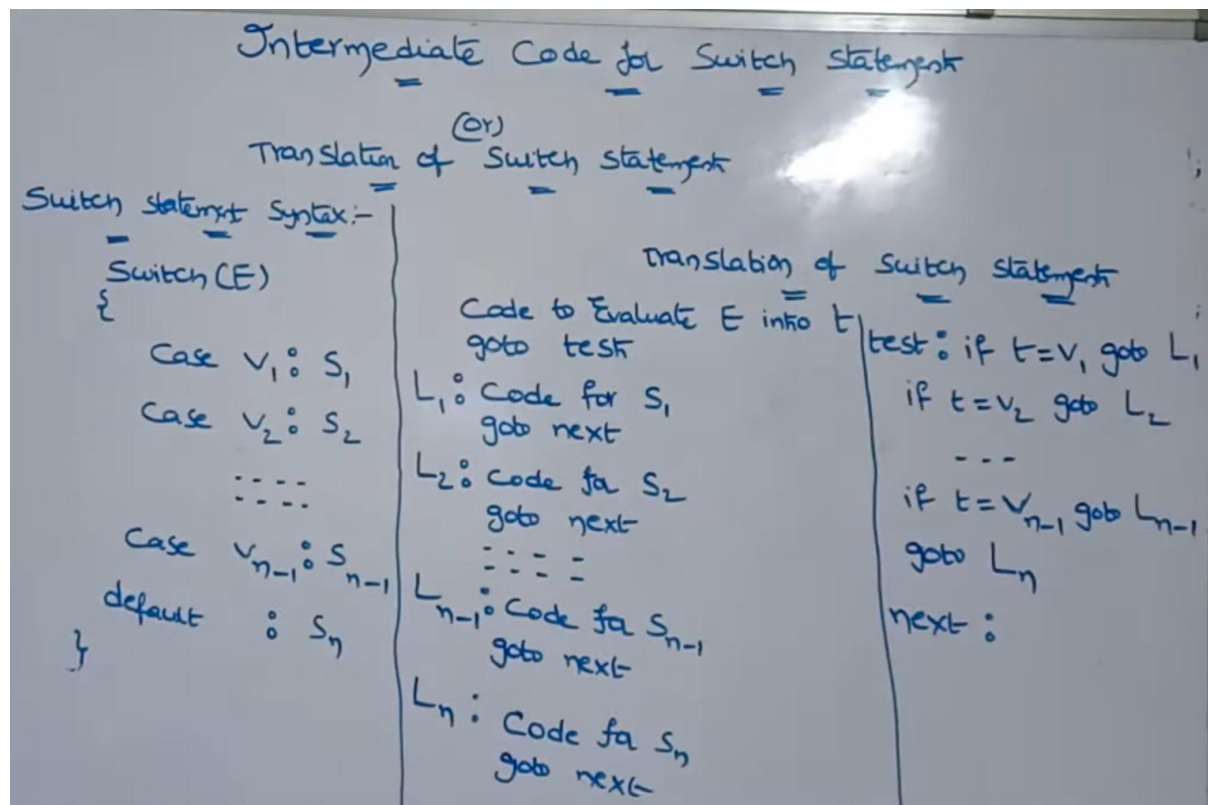 Intermediate Code for Switch Statement
(or)
Translation of Switch statement
Switch statement Syntax:-
Switch(E)
{
Case V₁: S₁
Case V₂: S₂
Case Vₙ₋₁: Sₙ₋₁
default : Sₙ
}
Translation of Switch statement
Code to Evaluate E into t
goto test
L₁: Code for S₁
goto next
L₂: Code for S₂
goto next
Lₙ₋₁: Code for Sₙ₋₁
goto next
Lₙ: Code for Sₙ
goto next
test: if t=V₁ goto L₁
if t=V₂ goto L₂
---
if t=Vₙ₋₁ goto Lₙ₋₁
goto Lₙ
next: